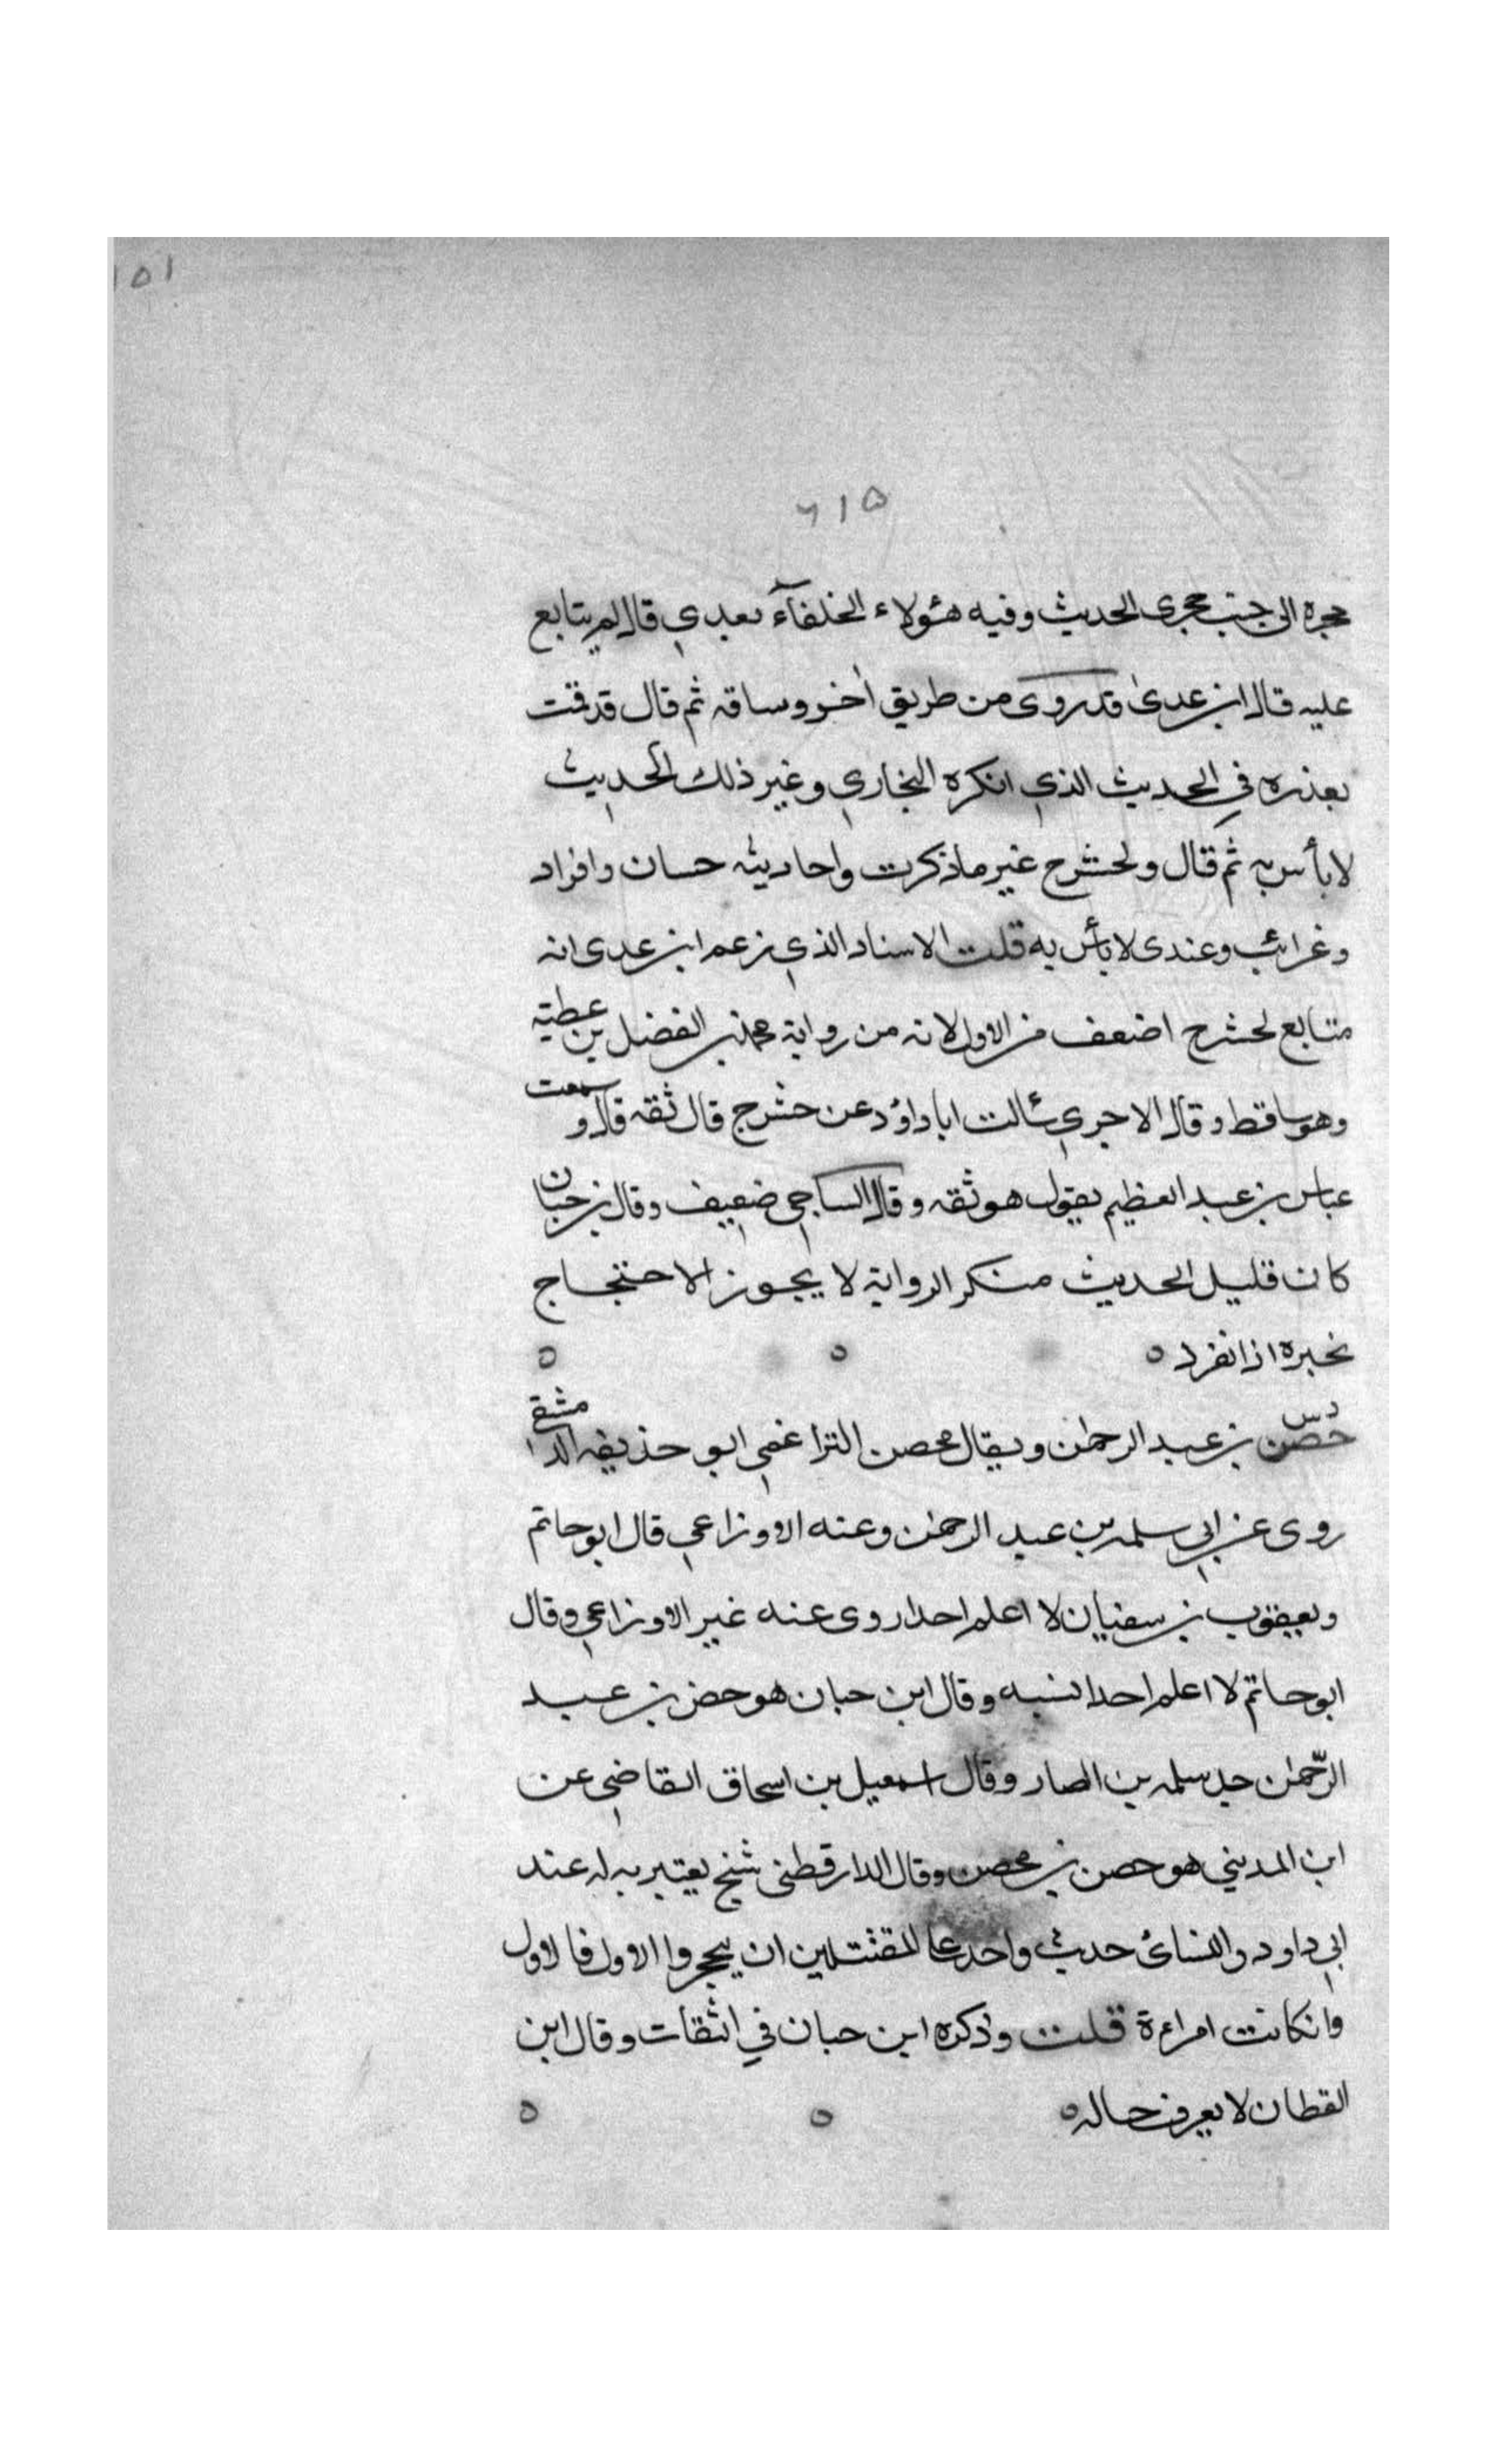 ١٥١
٦١٥
حجره الى جنب حجرى الحديث وفيه هئولاء الخلفآء بعدي قال لم يتابع
عليه قال ابن عدى وقد روى من طريق اخر وساقه ثم قال قد قمت
بعذره في الحديث الذي انكره البخاري وغير ذلك الحديث
لا بأس به ثم قال ولحشرج غير ما ذكرت واحاديثه حسان وافراد
وغرائب وعندى لا بأس به قلت الاسناد الذي زعم ابن عدى انه
متابع لحشرج اضعف من الاول لانه من رواية محمد بن الفضل بن عطية
وهو ساقط وقال الاجري سئالت ابا داؤد عن حشرج قال ثقه قال وسمعت
عباس بن عبد العظيم يقول هو ثقه وقال الساجي ضعيف وقال بن حبان
كان قليل الحديث منكر الرواية لا يجوز الاحتجاج
بخبره اذا انفرد ه ه ه
دس
حصن بن عبد الرحمن ويقال محصن التراغمي ابو حذيفه الدمشقي
روى عن ابي سلمه بن عبد الرحمن وعنه الاوزاعي قال ابو حاتم
ويعيقوب بن سفنيان لا اعلم احدا روى عنه غير الاوزاعي وقال
ابو حاتم لا اعلم احدا نسبه وقال ابن حبان هو حصن بن عبد
الرّحمن جد سلمه بن العيار وقال اسمعيل بن اسحاق القاضي عن
ابن المديني هو حصن بن محصن وقال الدارقطنى شيخ يعتبر به له عند
ابي داود والنسائ حديث واحد على المقتتلين ان ييحجروا الاول فالاول
وانكانت امراءة قلت وذكره ابن حبان في الثقات وقال ابن
القطان لا يعرف حاله ه ه ه